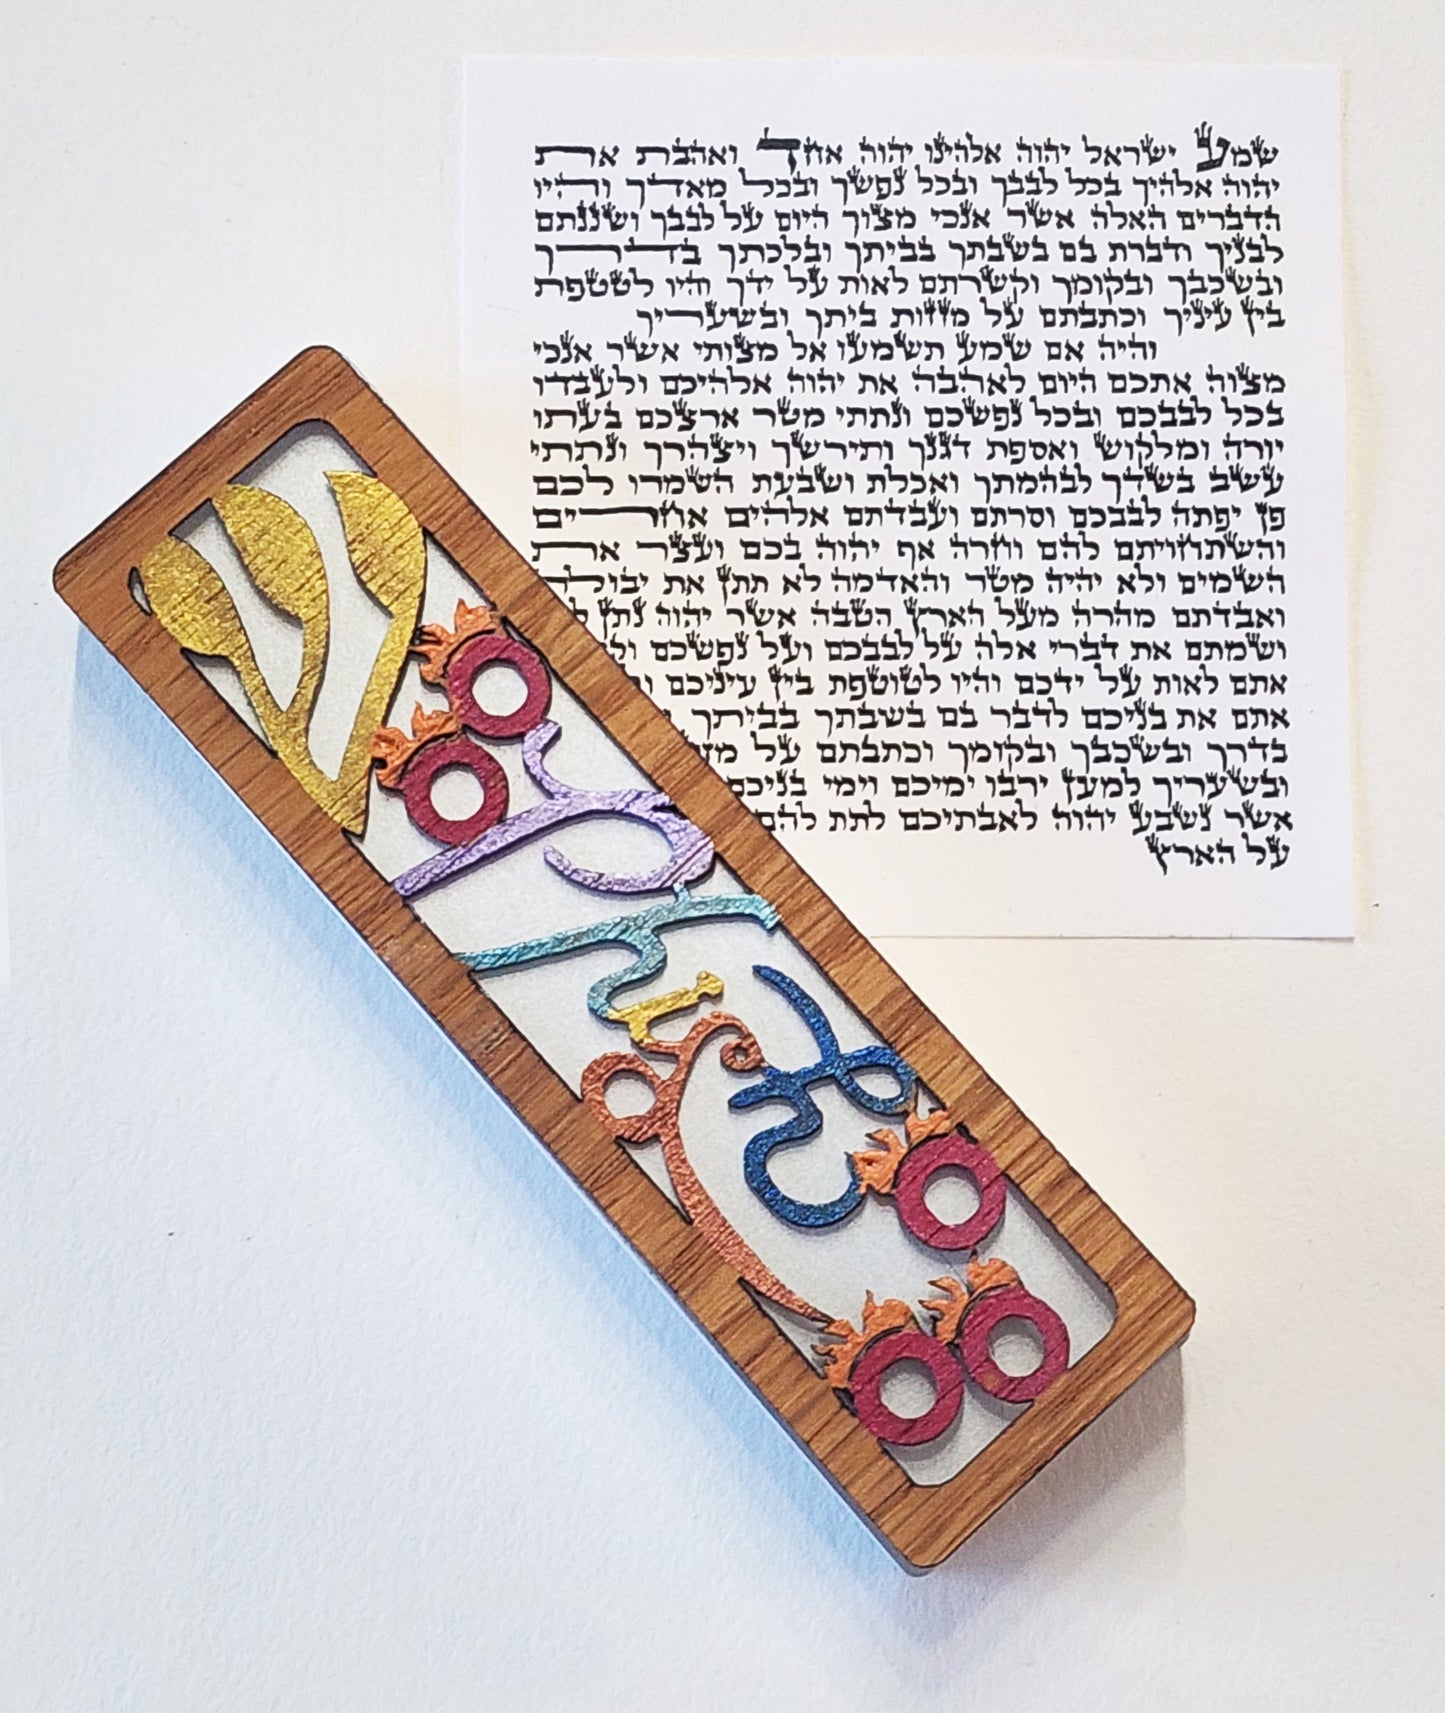 שמע ישראל יהוה אלהינו יהוה אחד ואהבת את
יהוה אלהיך בכל לבבך ובכל נפשך ובכל מאדך והיו
הדברים האלה אשר אנכי מצוך היום על לבבך ושננתם
לבניך ודברת בם בשבתך בביתך ובלכתך בדרך
ובשכבך ובקומך וקשרתם לאות על ידך והיו לטטפת
בין עיניך וכתבתם על מזזות ביתך ובשעריך
והיה אם שמע תשמעו אל מצותי אשר אנכי
מצוה אתכם היום לאהבה את יהוה אלהיכם ולעבדו
בכל לבבכם ובכל נפשכם ונתתי מטר ארצכם בעתו
יורה ומלקוש ואספת דגנך ותירשך ויצהרך ונתתי
עשב בשדך לבהמתך ואכלת ושבעת השמרו לכם
פן יפתה לבבכם וסרתם ועבדתם אלהים אחרים
והשתחויתם להם וחרה אף יהוה בכם ועצר את
השמים ולא יהיה מטר והאדמה לא תתן את יבולה
ואבדתם מהרה מעל הארץ הטבה אשר יהוה נתן
ושמתם את דברי אלה על לבבכם ועל נפשכם
אתם לאות על ידכם והיו לטוטפת בין עיניכם
אתם את בניכם לדבר בם בשבתך בביתך
בדרך ובשכבך ובקומך וכתבתם על
ובשעריך למען ירבו ימיכם וימי בניכם
אשר נשבע יהוה לאבתיכם לתת להם
על הארץ
ש